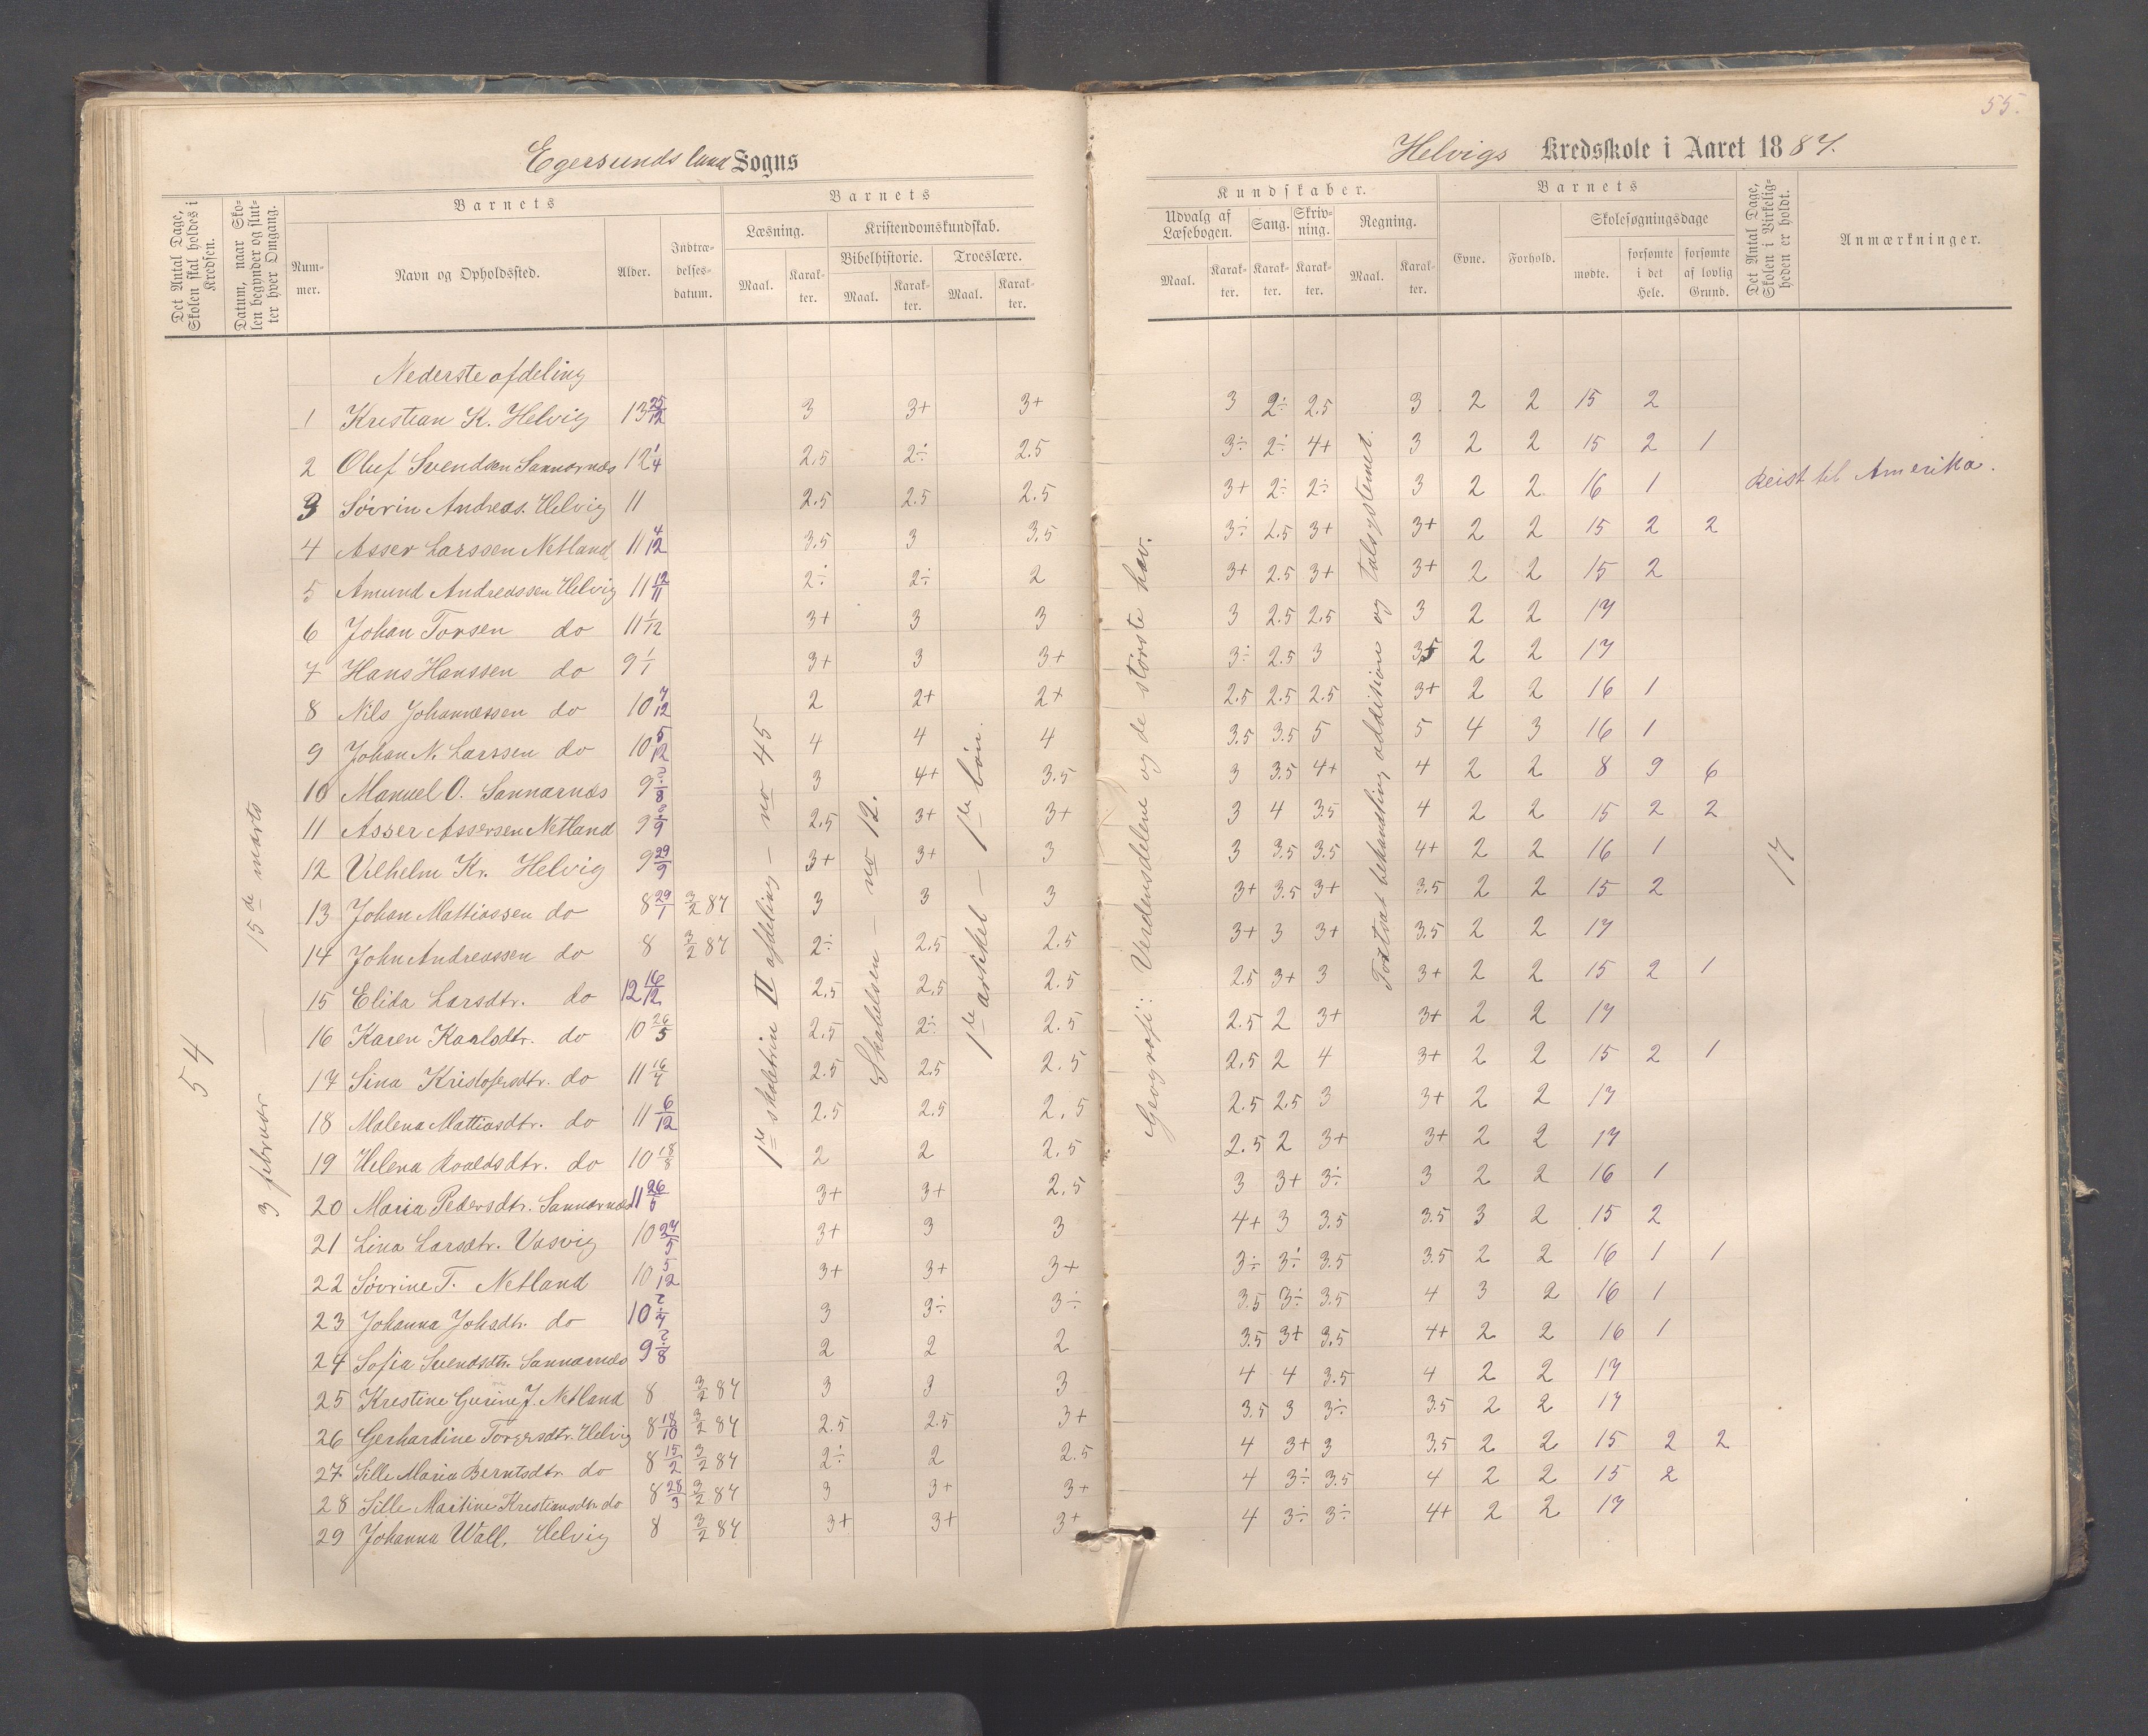 55.
Egersunds land Sogns
Helvigs Kredsskole i Aaret 1887.
Det Antal Dage, Skolen skal holdes i Kredsen.
Datum, naar Skolen begynder og slutter hver Omgang.
Barnets
Nummer.
Navn og Opholdssted.
Alder.
Indtrædelsesdatum.
Barnets
Læsning.
Maal.
Karakter.
Kristendomskundskab.
Bibelhistorie.
Maal.
Karakter.
Troeslære.
Maal.
Karakter.
Kundskaber.
Udvalg af Læsebogen.
Maal.
Karakter.
Sang.
Karakter.
Skrivning.
Karakter.
Regning.
Maal.
Karakter.
Barnets
Evne.
Forhold.
Skolesøgningsdage
mødte.
forsømte i det Hele.
forsømte af lovlig Grund.
Det Antal Dage, Skolen i Virkeligheden er holdt.
Anmærkninger.
54
3 februar — 15de marts
1ste skoletrin II afdeling — no 45
Skabelsen — no 12.
1ste artikel — 1ste bøn.
Geografi: Verdensdelene og de største hav.
Tostvat behandling addision og talsystemet.
17
Nederste afdeling
1 Kristian K. Helvig 13 25/12 3 3+ 3+ 3 2÷ 2.5 3 2 2 15 2
2 Oluf Svendsen Sannarnæs 12 1/4 2.5 2÷ 2.5 3÷ 2÷ 4+ 3 2 2 15 2 1
3 Sövrin Andreas. Helvig 11 2.5 2.5 2.5 3+ 2÷ 2÷ 3 2 2 16 1 Reist til Amerika.
4 Asser Larssen Netland 11 4/12 3.5 3 3.5 3÷ 2.5 3+ 3+ 2 2 15 2 2
5 Amund Andreassen Helvig 11 12/11 2÷ 2÷ 2 3+ 2.5 3+ 3+ 2 2 15 2
6 Johan Torsen do 11 1/12 3+ 3 3 3 2.5 2.5 3 2 2 17
7 Hans Hanssen do 9 1/1 3+ 3 3+ 3÷ 2.5 3 3.5 2 2 17
8 Nils Johannessen do 10 7/12 2 2+ 2+ 2.5 2.5 2.5 3+ 2 2 16 1
9 Johan N. Larssen do 10 5/12 4 4 4 3.5 3.5 5 5 4 3 16 1
10 Manuel O. Sannarnæs 9 ?/8 3 4+ 3.5 3 3.5 4+ 4 2 2 8 9 6
11 Asser Assersen Netland 9 ?/9 2.5 3+ 3+ 3 4 3.5 4 2 2 15 2 2
12 Vilhelm Kr. Helvig 9 29/9 3+ 3+ 3 3 3.5 3.5 4+ 2 2 16 1
13 Johan Mattiassen do 8 29/1 3/2 87 3 3 3 3+ 3.5 3+ 3.5 2 2 15 2
14 John Andreassen do 8 3/2 87 2÷ 2.5 2.5 3+ 3 3+ 3.5 2 2 17
15 Elida Larsdtr. do 12 16/12 2.5 2.5 2.5 2.5 3+ 3 3+ 2 2 15 2 1
16 Karen Karlsdtr. do 10 26/5 2.5 2÷ 2.5 2.5 2 3+ 3+ 2 2 17
17 Sina Kristofersdtr. do 11 16/7 2.5 2.5 2.5 2.5 2 4 3+ 2 2 15 2 1
18 Malena Mattiasdtr. do 11 6/12 2.5 2.5 2.5 2.5 2.5 3 3+ 2 2 17
19 Helena Roaldsdtr. do 10 18/8 2 2 2.5 2.5 2 3+ 3+ 2 2 17
20 Maria Pedersdtr. Sannarnæs 11 26/5 3+ 3+ 2.5 3 3+ 3÷ 3 2 2 16 1
21 Lina Larsdtr. Vasvig 10 27/5 3+ 3 3 4+ 3 3.5 3.5 3 2 15 2
22 Sövrine T. Netland 10 5/12 3+ 3+ 3+ 3÷ 3÷ 3.5 3.5 2 2 16 1 1
23 Johanna Johsdtr. do 10 ?/7 3 3÷ 3÷ 3.5 3÷ 3.5 4 3 2 16 1
24 Sofia Svendsdtr. Sannarnæs 9 ?/8 2 2 2 3.5 3+ 3.5 4+ 2 2 16 1
25 Kristine Gurine J. Netland 8 3/2 87 3 3 3 4 4 3.5 4 2 2 17
26 Gerhardine Torgersdtr. Helvig 8 18/10 3/2 87 2.5 2.5 3+ 3.5 3 3÷ 3.5 2 2 17
27 Sille Maria Berntsdtr. do 8 15/2 3/2 87 2÷ 2 2.5 4 3+ 3 3.5 2 2 15 2 2
28 Sille Martine Kristiansdtr do 8 28/3 3/2 87 3 3+ 3+ 4 3÷ 3.5 4 2 2 15 2
29 Johanna Wall. Helvig 8 3/2 87 3+ 3+ 3+ 4 3÷ 3÷ 4+ 2 2 17